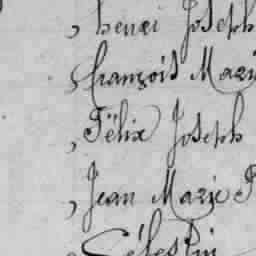 , henri Joseph
, françois Mari
, Félix Joseph
, Jean Marie
, Célestin